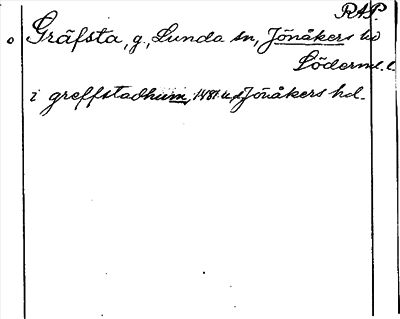 RAP.
Gräfsta, g., Lunda sn, Jönåkers hd
Söderml. l.
i greffstadhum, 1481 Jönåkers hd.